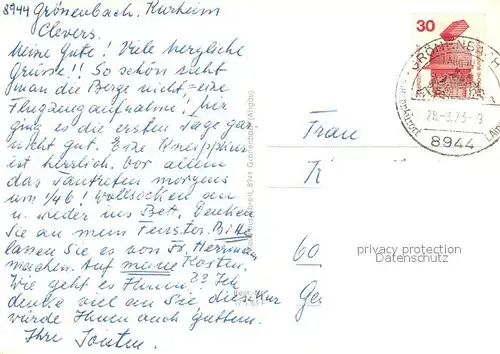 8944 Grönenbach. Kurheim
Clevers.
Meine Gute! Viele herzliche
Grüsse!! So schön sieht
man die Berge nicht, = eine
Flugzeugaufnahme! Mir
ging es die ersten Tage gar
nicht gut. Eine Kneippkur
ist herrlich. Vor allem
das Tautreten morgens
um 1/46! Wollsocken an
u. wieder ins Bett. Denken
Sie an mein Fenster. Bitte
lassen Sie es von Fr. Herrmann
machen. Auf meine Kosten.
Wie geht es Ihnen?? Ich
denke viel an Sie, diese Kur
würde Ihnen auch guttun.
Ihre
30
GRÖNENBACH
(Allgäu)
8944
Frau
K
60
Ge
privacy protection
Datenschutz
8944 Grönenbach (Allgäu)
Best.-Nr.